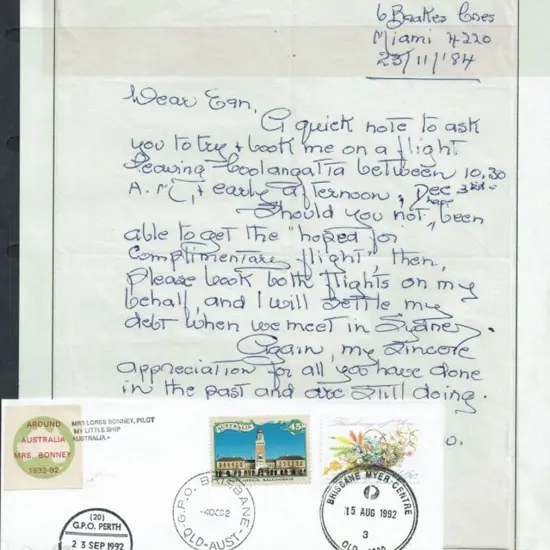 6 Baakes Cres
Miami 4220
23/11/'84
Dear Egn,
A quick note to ask
you to try & book me on a flight
leaving Coolangatta between 10.30
A.M., & early afternoon, Dec 3rd
Should you not, have been
able to get the "hoped for
Complimentary flight", then,
please book both flights on my
behalf, and I will settle my
debt when we meet in Sydney.
Again, my sincere
appreciation for all you have done
in the past and are still doing.
AROUND
AUSTRALIA
MRS. BONNEY
1932-92
MRS LORES BONNEY, PILOT
MY LITTLE SHIP
AUSTRALIA -
AUSTRALIA 45c
POST OFFICE, KALGOORLIE
Thinking of You
G.P.O. BRISBANE
QLD-AUST
BRISBANE MYER CENTRE
15 AUG 1992
3
QLD 4000
(20)
G.P.O. PERTH
23 SEP 1992